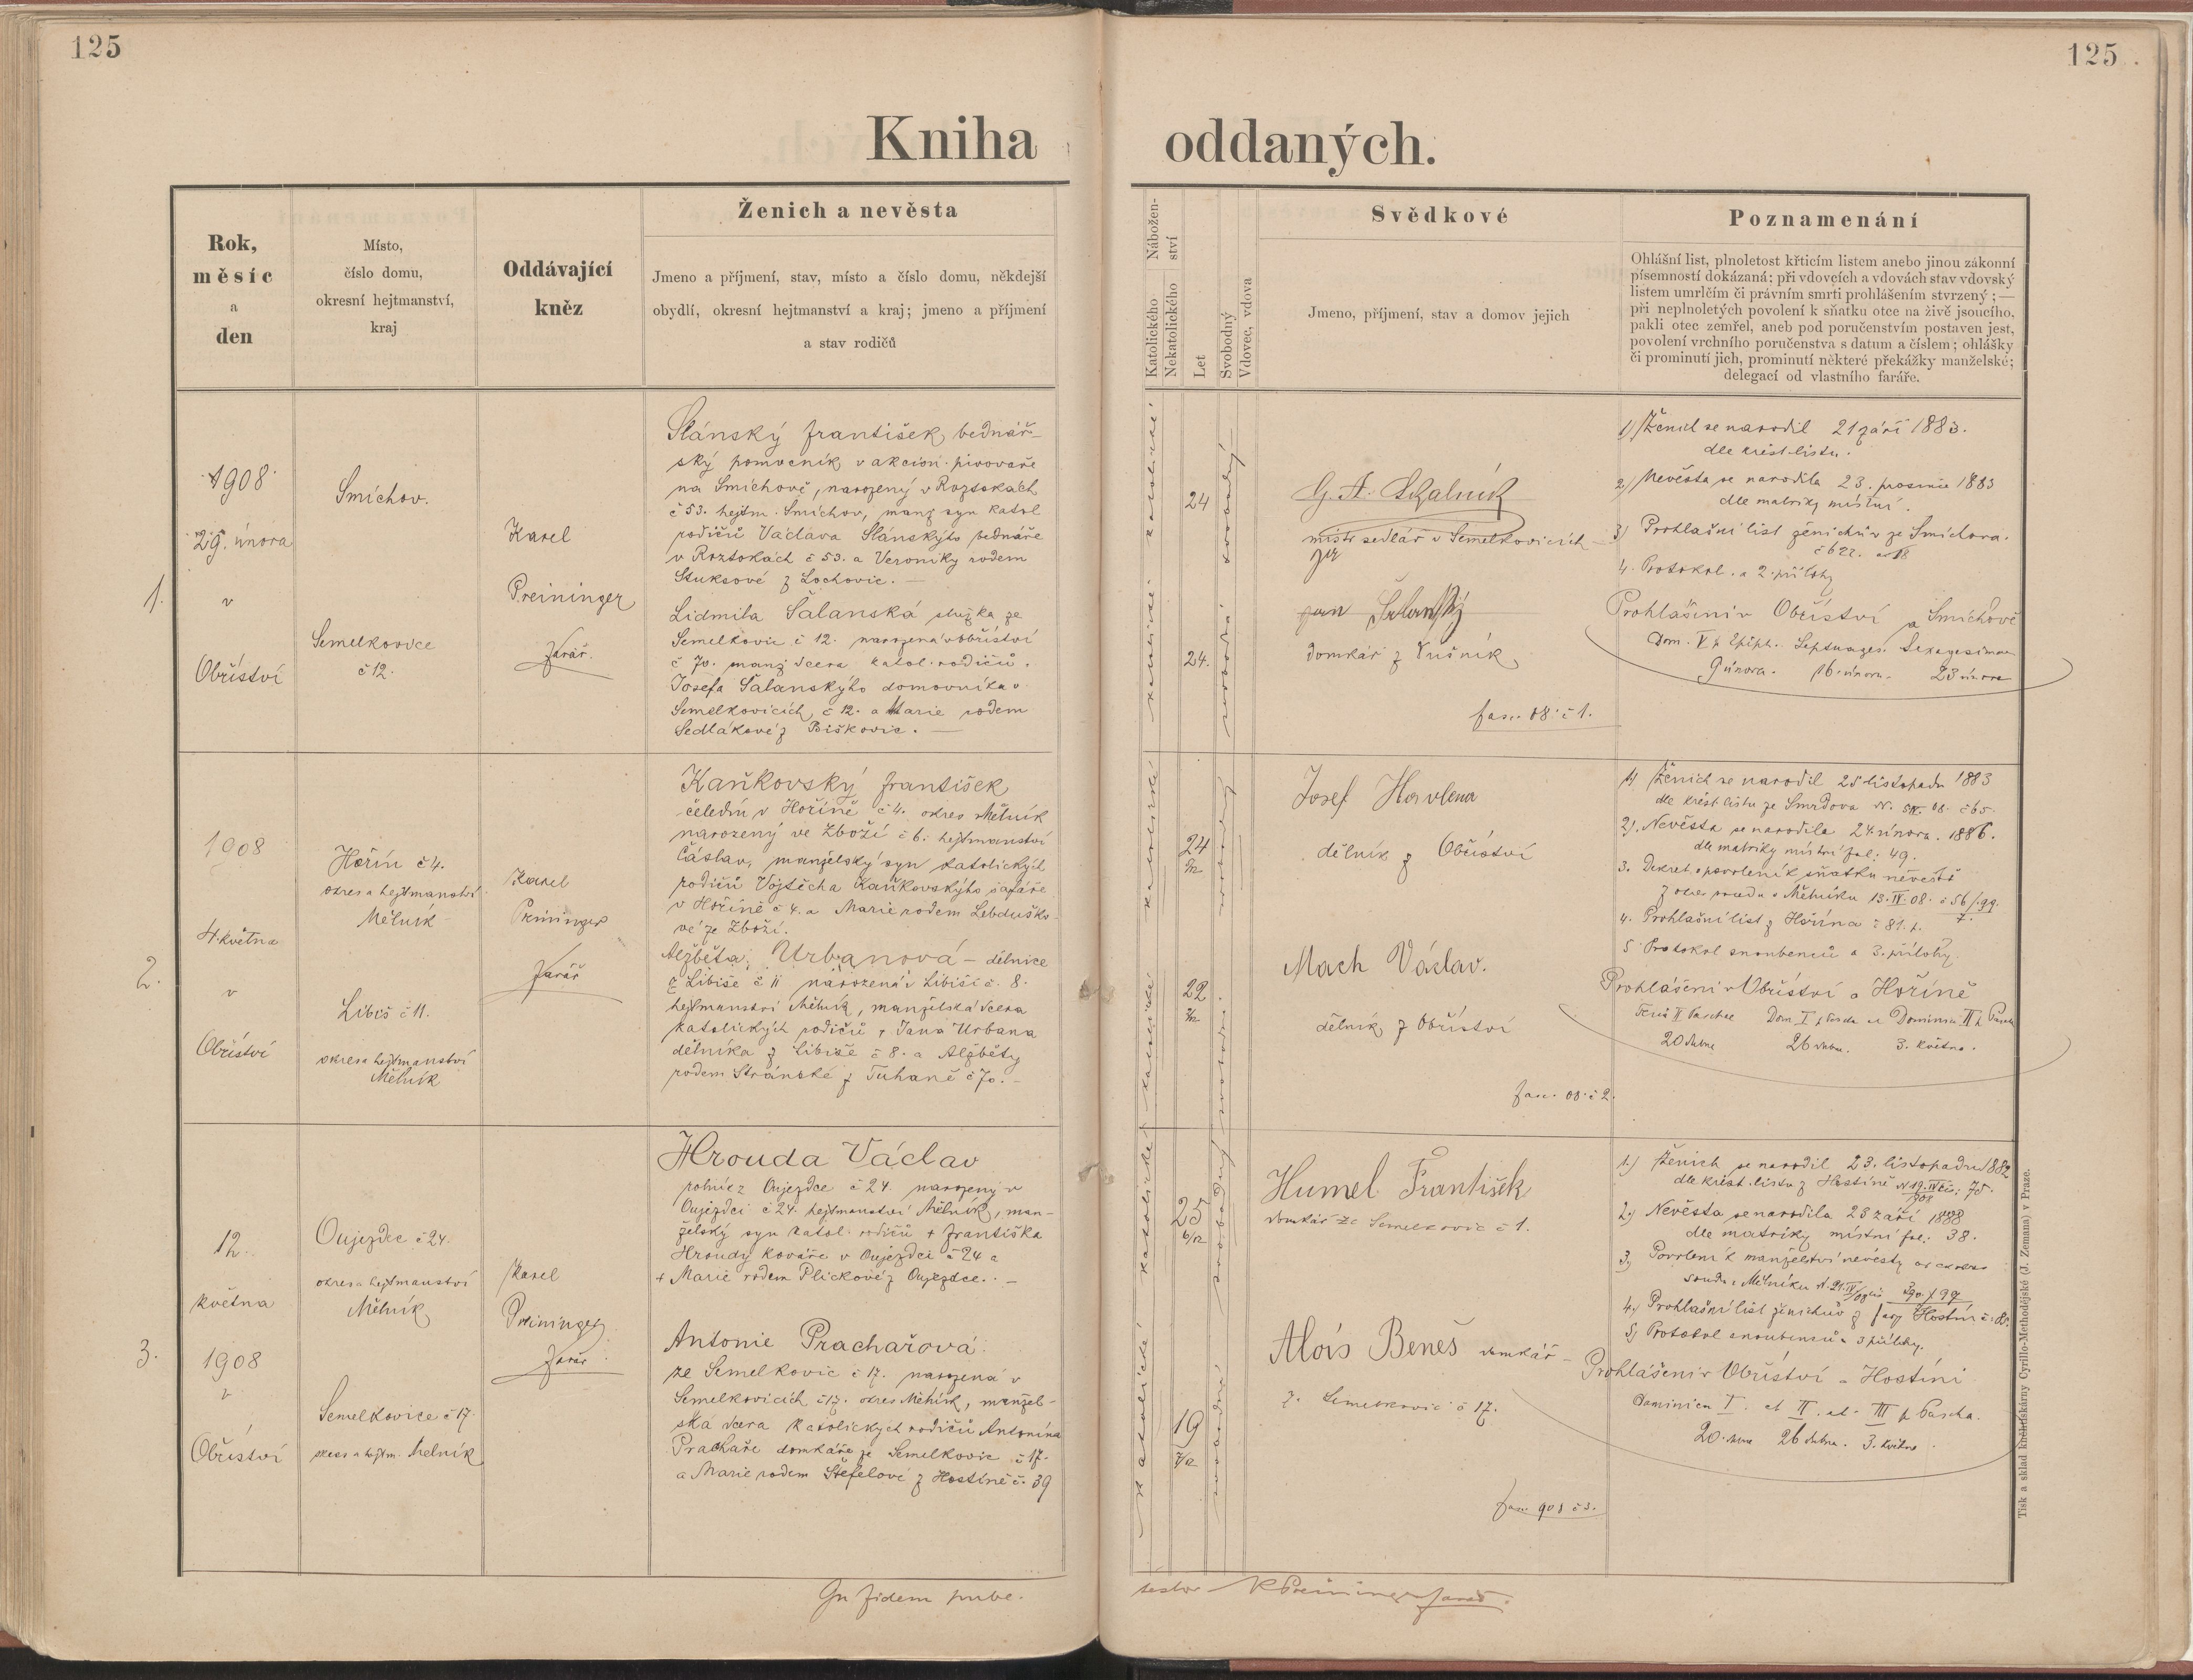 125
125
Kniha oddaných.
Rok,
měsíc
a
den
Místo,
číslo domu,
okresní hejtmanství,
kraj
Oddávající
kněz
Ženich a nevěsta
Jmeno a příjmení, stav, místo a číslo domu, někdejší
obydlí, okresní hejtmanství a kraj; jmeno a příjmení
a stav rodičů
Nábožen-
ství
Katolického
Nekatolického
Let
Svobodný
Vdovec, vdova
Svědkové
Jmeno, příjmení, stav a domov jejich
Poznamenání
Ohlášní list, plnoletost křticím listem anebo jinou zákonní
písemností dokázaná; při vdovcích a vdovách stav vdovský
listem umrlčím či právním smrti prohlášením stvrzený; —
při neplnoletých povolení k sňatku otce na živě jsoucího,
pakli otec zemřel, aneb pod poručenstvím postaven jest,
povolení vrchního poručenstva s datum a číslem; ohlášky
či prominutí jich, prominutí některé překážky manželské;
delegací od vlastního faráře.
1.
1908
29. února
v
Obříství
Smíchov.
Semelkovice
č 12.
Karel
Preininger
farář.
Slánský František, bednář-
ský pomocník v akcion. pivovaře
na Smíchově, narozený v Roztokách
č 53. hejtm. Smíchov, manž syn katol
rodičů Václava Slánskýho bednáře
v Roztokách č 53. a Veroniky rodem
Stuksové z Lochovic. —
Lidmila Šalanská služka ze
Semelkovic č 12. narozená v Obříství
č 70. manž dcera katol. rodičů.
Josefa Šalanskýho domovníka v
Semelkovicích č 12. a Marie rodem
Sedlákové z Biškovic. —
katolické
katolické
24
24.
svobodný
svobodná
G. A. Skalník
mistr sedlář v Semelkovicích
Jan Šalanský
domkář z
fasc. 08. č 1.
1) Ženich se narodil 21 září 1883.
dle křest. listu.
2) Nevěsta se narodila 23. prosince 1883
dle matriky místní.
3) Prohlašní list ženichův ze Smíchova.
č 622.
4. Protokol. a 2. přílohy
Prohlášeni v Obříství a Smíchově
Dom. V p Epiph. Septuages. Sexagesima
9 února. 16. února. 23 února
2.
1908
4. května
v
Obříství
Hořín č 4.
okres a hejtmanství
Mělník
Libiš č 11.
okres a hejtmanství
Mělník
Karel
Preininger
farář
Kaňkovský František
čeledín v Hoříně č 4. okres Mělník
narozený ve Zboží č 6. hejtmanství
Čáslav, manželský syn katolických
rodičů Vojtěcha Kaňkovskýho šafáře
v Hoříně č 4. a Marie rodem Lebduško-
vé ze Zboží.
Alžběta Urbanová — dělnice
z Libiše č 11 narozená v Libiši č. 8.
hejtmanství Mělník, manželská dcera
katolických rodičů † Jana Urbana
dělníka z Libiše č 8. a Alžběty
rodem Stránské z Tuhaně č 70. —
katolické
katolické
24
22
svobodný
svobodná
Josef Havlena
dělník z Obříství
Mach Václav.
dělník z Obříství
fasc. 08. č 2.
1) Ženich se narodil 25 listopadu 1883
dle křest listu ze Smrdova
2). Nevěsta se narodila 24 února. 1886.
dle matriky místní fol: 49.
3. Dekret o povolení k sňatku nevěstě
4. Prohlašní list z Hořína č 81.
5 Protokol snoubenců a 3. přílohy.
Prohlášeni v Obříství a Hoříně
20 dubna 26 dubna. 3. května.
3.
12.
května
1908
v
Obříství
Oujezdec č 24.
okres a hejtmanství
Mělník
Semelkovice č 17.
okres a hejtm. Mělník
Karel
Preininger
farář
Hrouda Václav
rolník z Oujezdce č 24. narozený v
Oujezdci č 24. hejtmanství Mělník, man-
želský syn katol. rodičů † Františka
Hroudy kováře v Oujezdci č 24 a
† Marie rodem Plickové z Oujezdce. —
Antonie Prachařová
ze Semelkovic č 17. narozená v
Semelkovicích č 17. okres Mělník, manžel-
ská dcera katolických rodičů Antonína
Prachaře domkáře ze Semelkovic č 17.
a Marie rodem Štefelové z Hostíně č. 39
katolické
katolické
25
6/12
19
7/12
svobodný
svobodná
Humel František
domkář ze Semelkovic č 1.
Alois Beneš domkář
z Semelkovic č 17.
fasc. 908 č 3.
1.) Ženich se narodil 23. listopadu 1882
dle křest. listu z Hostíně
2.) Nevěsta se narodila 23 září 1888
dle matriky místní fol: 38.
3) Povolení k manželství nevěsty
soudu v Mělníku
4.) Prohlašní list ženichův z fary Hostín
5) Protokol snoubenců a 3 přílohy.
Prohlášeni v Obříství a Hostíni
Dominica I. et II. et III p Pascha.
20. dubna 26 dubna. 3. května.
Tisk a sklad knihtiskárny Cyrillo-Methodějské (J. Zemana) v Praze.
In fidem publ.
K Preininger farář.